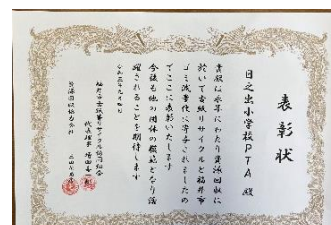 表彰状
日之出小学校PTA 殿
貴殿は永年にわたり資源回収に
於いて古紙リサイクルと福井市
ゴミ減量化に寄与されましたの
でここに表彰いたします
今後も他の団体の模範となり活
躍されることを期待します
代表理事